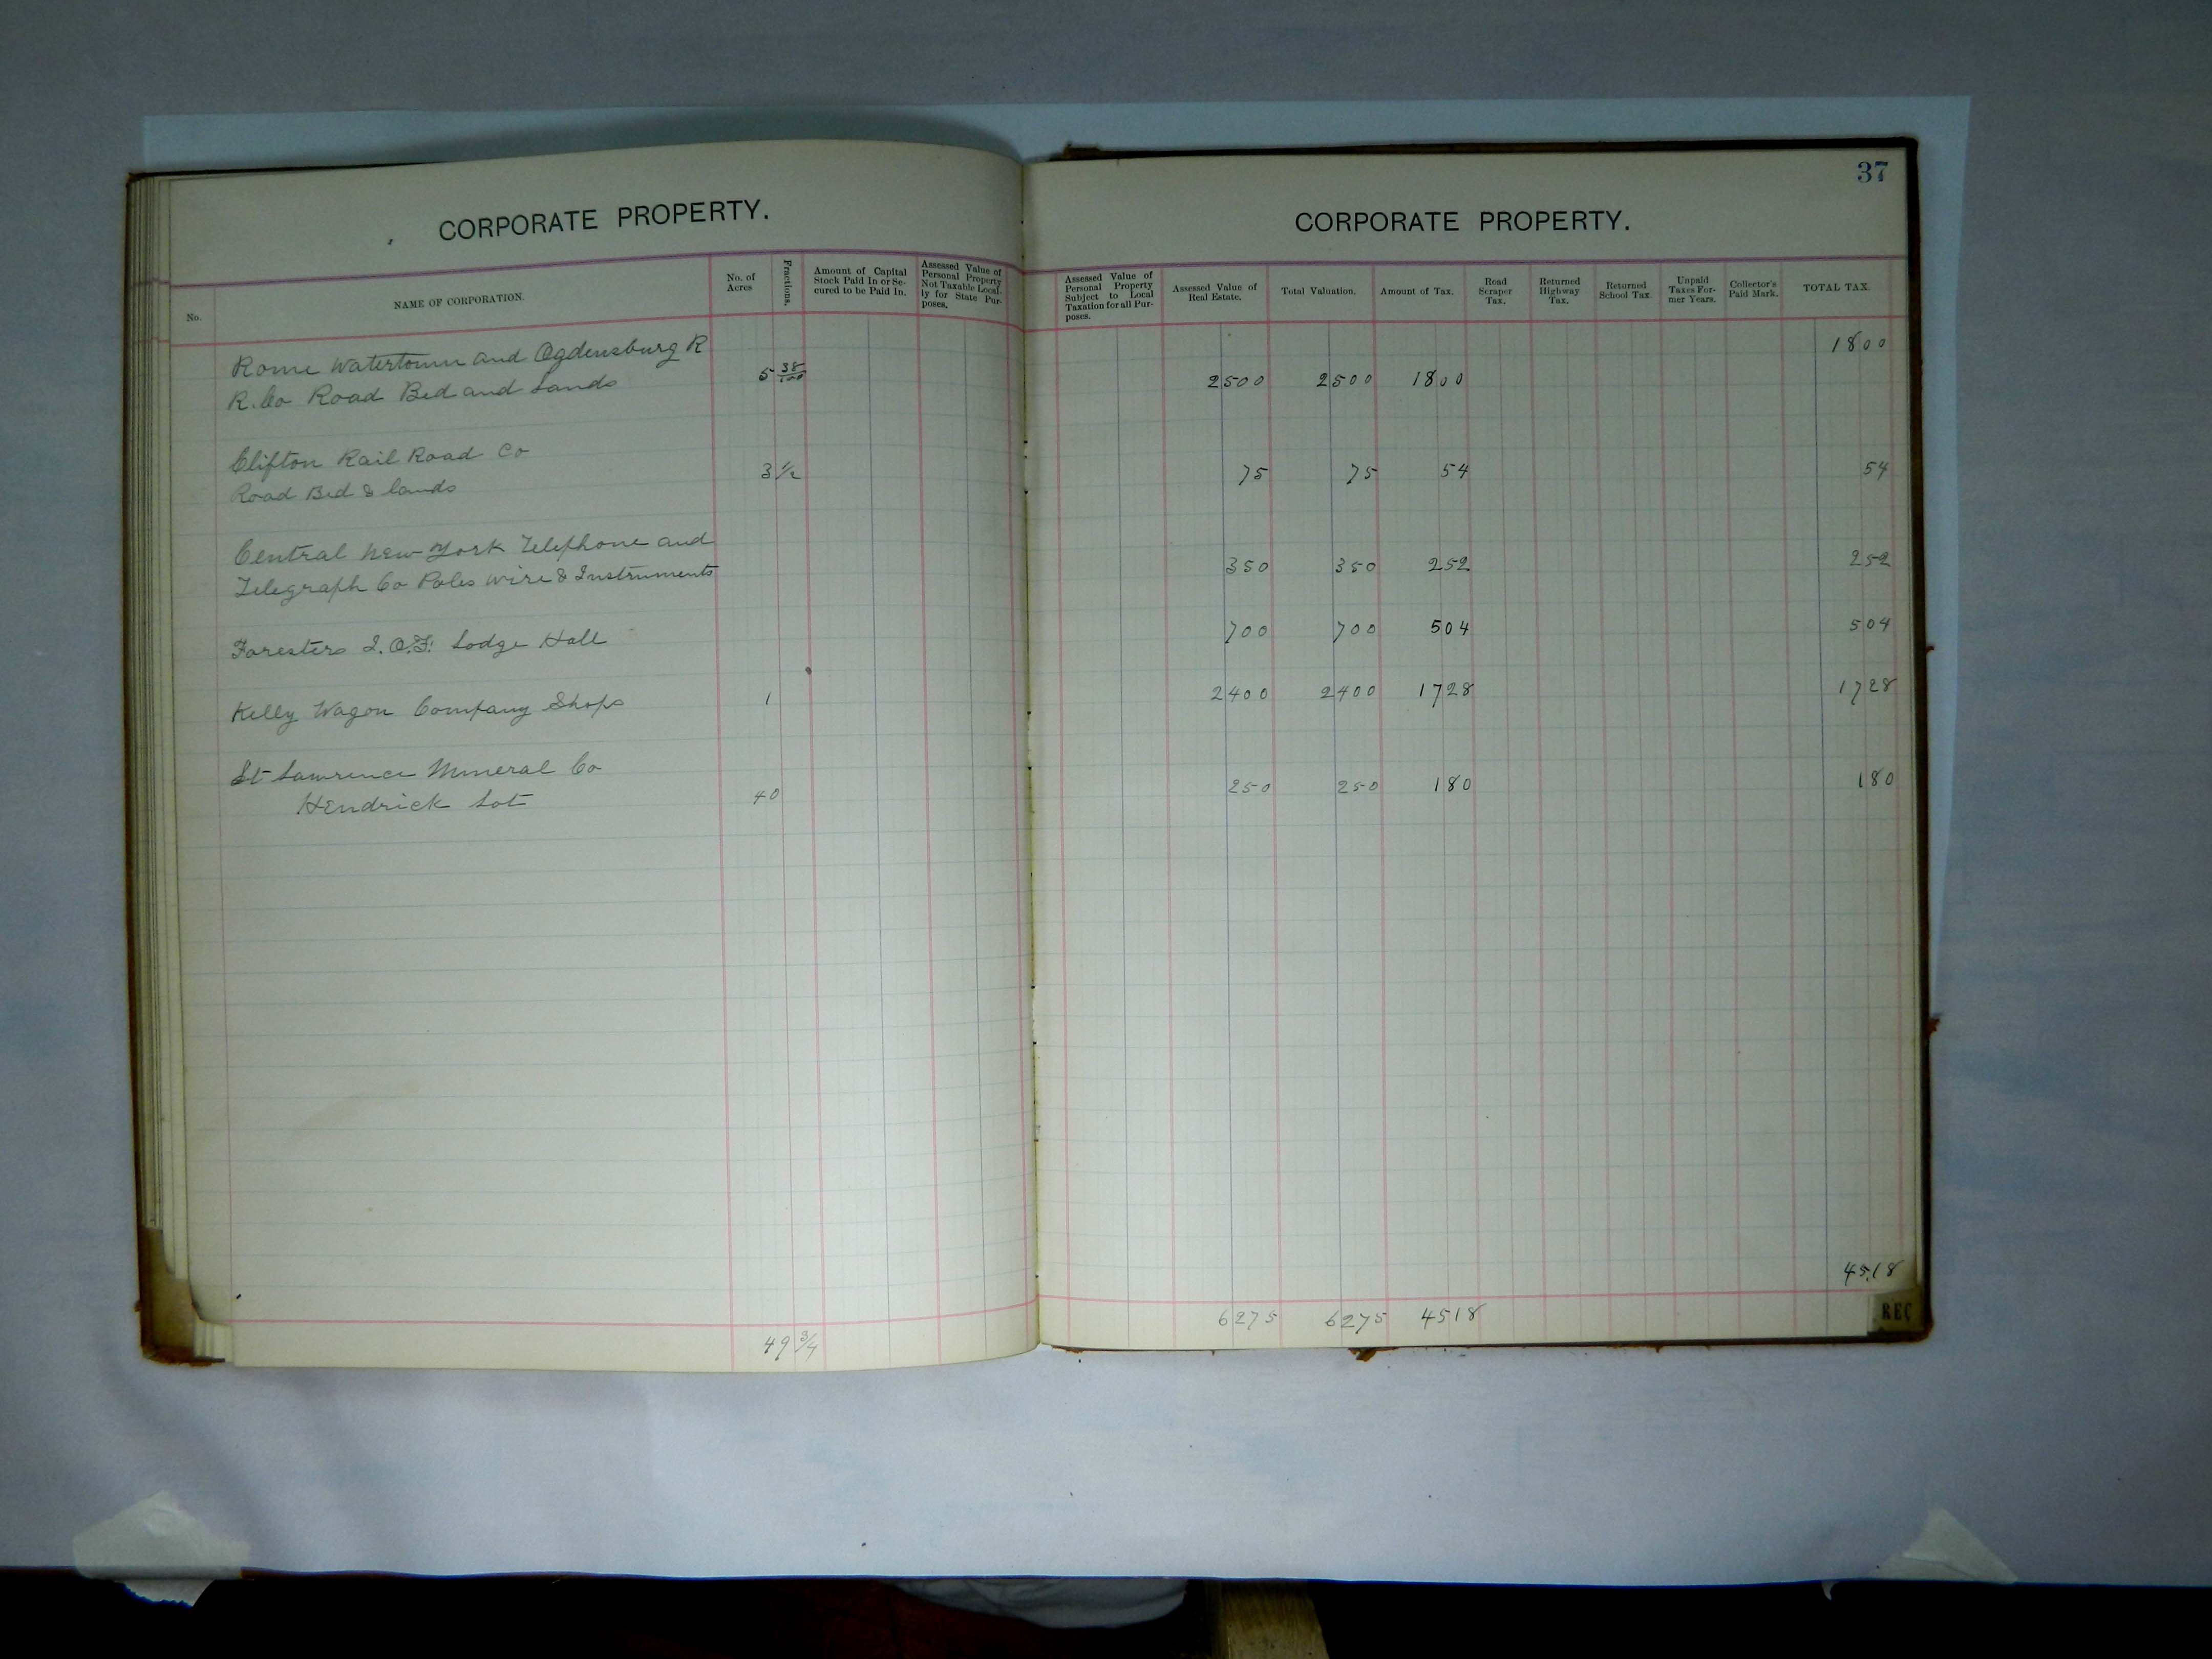 37
CORPORATE PROPERTY. CORPORATE PROPERTY.
No. NAME OF CORPORATION. No. of Acres Fractions. Amount of Capital Stock Paid In or Secured to be Paid In. Assessed Value of Personal Property Not Taxable Locally for State Purposes. Assessed Value of Personal Property Subject to Local Taxation for all Purposes. Assessed Value of Real Estate. Total Valuation. Amount of Tax. Road Scraper Tax. Returned Highway Tax. Returned School Tax. Unpaid Taxes Former Years. Collector's Paid Mark. TOTAL TAX.
Rome Watertown and Ogdensburg R 1800
R. Co Road Bed and Lands 5 38/100 2500 2500 1800
Clifton Rail Road Co
Road Bed & lands 3 1/2 75 75 54 54
Central New York Telephone and
Telegraph Co Poles Wire & Instruments 350 350 252 252
Foresters I.O.F. Lodge Hall 700 700 504 504
Kelly Wagon Company Shops 1 2400 2400 1728 1728
St Lawrence Mineral Co
Hendrick Lot 40 250 250 180 180
4518
49 3/4 6275 6275 4518
REC